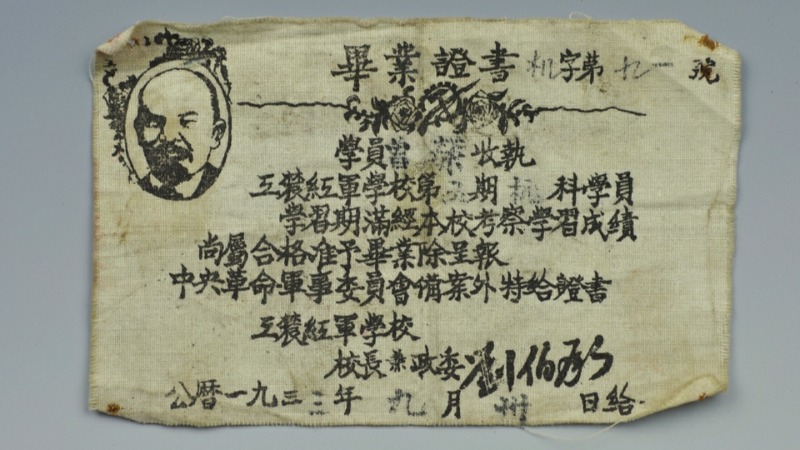 畢業證書 机字第九一號
學員曾收執
工農紅軍學校第期科學員
學習期滿經本校考察學習成績
尚屬合格准予畢業除呈報
中央革命軍事委員會備案外特給證書
工農紅軍學校
校長兼政委劉伯承
公曆一九三三年九月卅日給